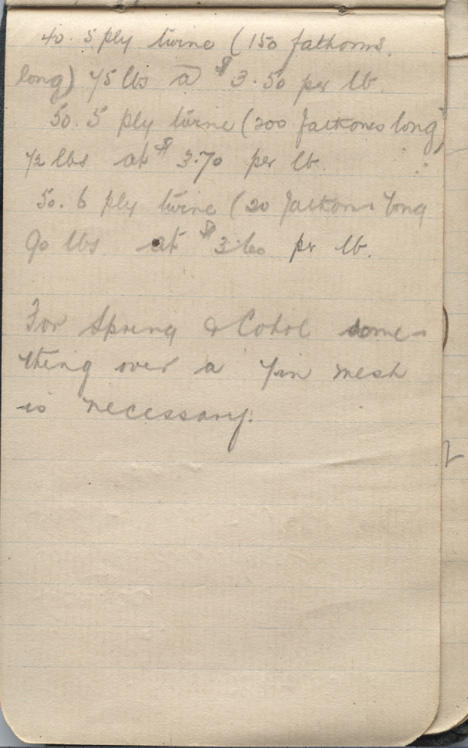 40. 5 ply twine (150 fathoms
long) 75 lbs @ $3.50 per lb.
50. 5 ply twine (200 fathoms long)
72 lbs at $3.70 per lb.
50. 6 ply twine (20 fathoms long
90 lbs at $3.60 pr lb.
For Spring & Cohol some-
thing over a 7in mesh
is necessary.